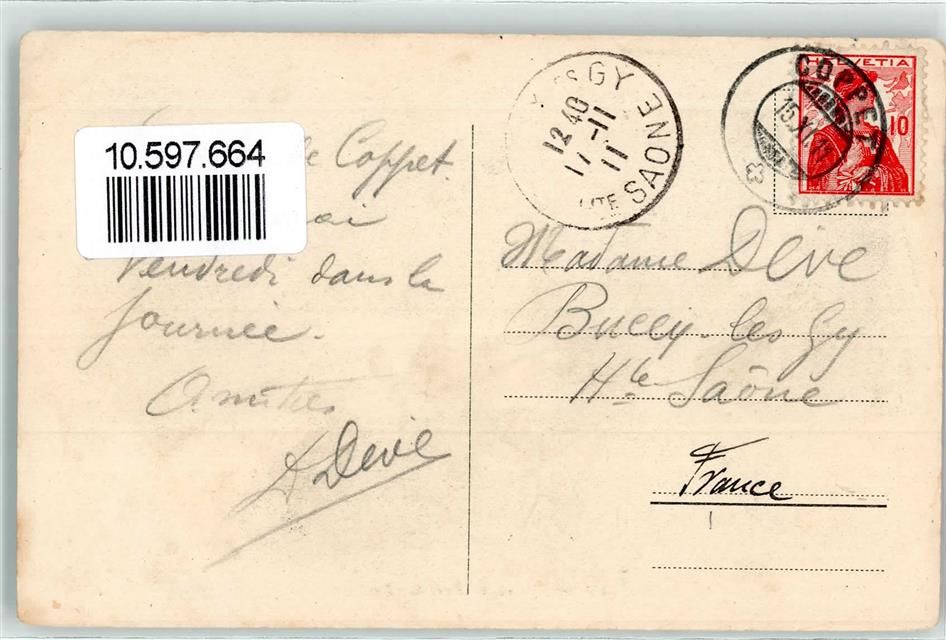 10.597.664
Coppet.
Vendredi dans la
journée.
Amitiés
A Deve
GY
SAONE
12 40
17 -11
11
COPPET
15.XI.11
HELVETIA
10
Madame Deve
Bucey-les Gy
Hte Saône
France